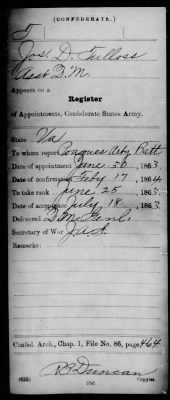 (CONFEDERATE.)
T
Jos. D. Tulloss
Asst Q.M.
Appears on a
Register
of Appointments, Confederate States Army.
State Va
To whom report Coaques Arty Batt
Date of appointment June 30, 1863.
Date of confirmat Feby 17, 1864
To take rank June 25, 1863
Date of acceptance July 18, 1863.
Delivered Q.M. Genl.
Secretary of War J.A.S.
Remarks:
Confed. Arch., Chap. 1, File No. 86, page 464
R B Duncan
(635) Copyist.